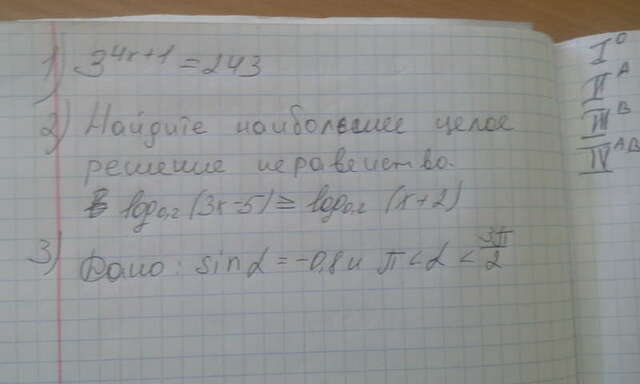 1) 3^{4x+1} = 243
2) Найдите наибольшее целое
решение неравенства.
log_{0,2}(3x-5) ≥ log_{0,2} (x+2)
3) Дано: sin α = -0,8 и π < α < 3π/2
I^0
II^A
III^B
IV^{AB}